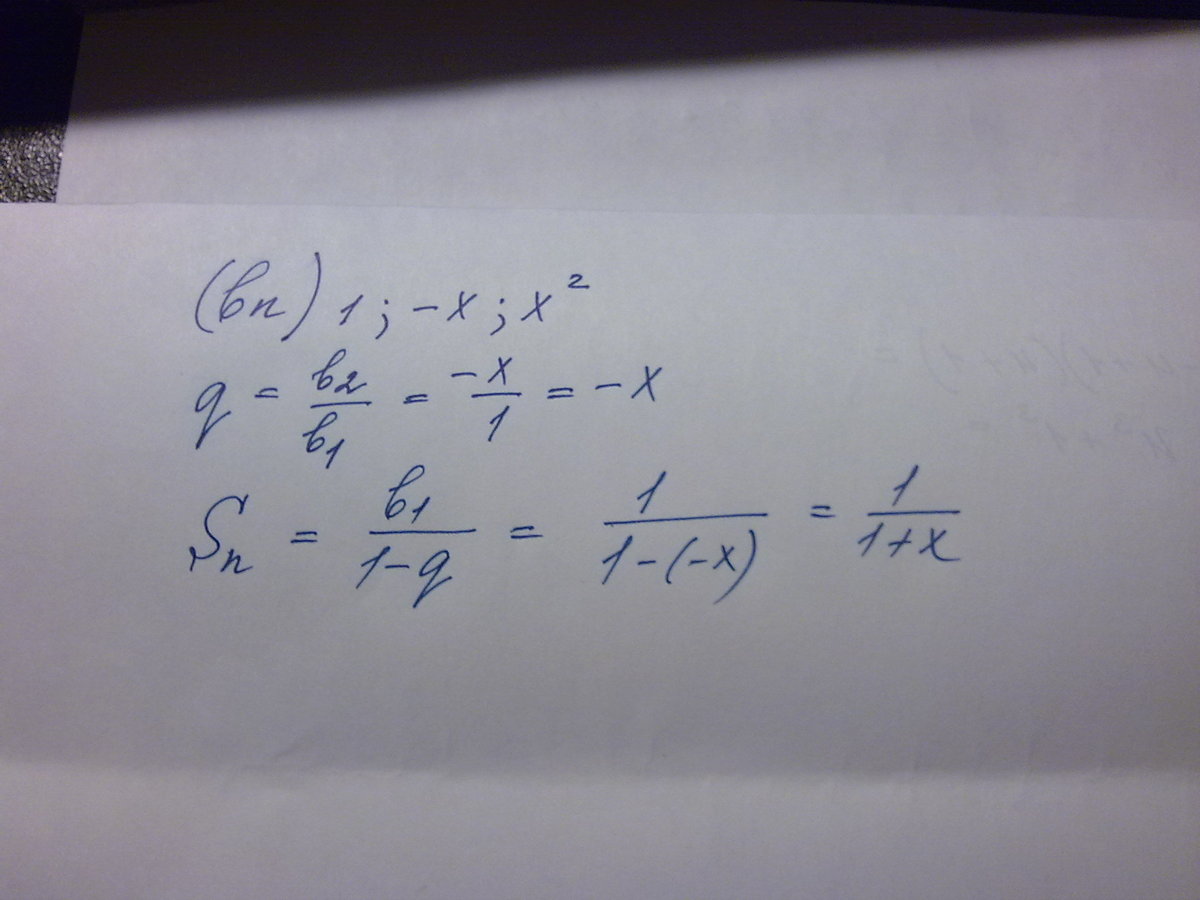 (bn) 1; -x; x²
q = b2/b1 = -x/1 = -x
Sn = b1/(1-q) = 1/(1-(-x)) = 1/(1+x)